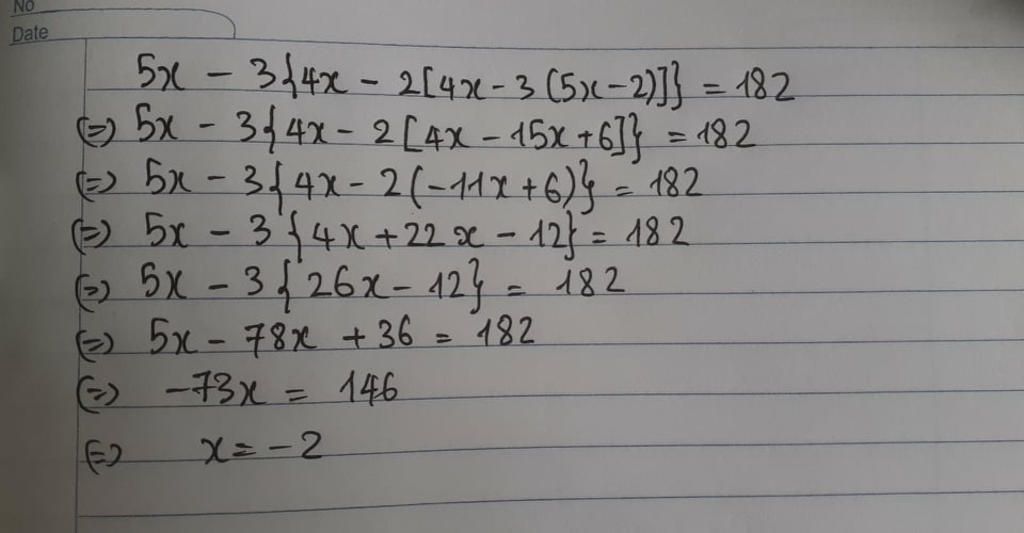 No
Date
5x - 3{4x - 2[4x - 3(5x - 2)]} = 182
(=) 5x - 3{4x - 2[4x - 15x + 6]} = 182
(=) 5x - 3{4x - 2(-11x + 6)} = 182
(=) 5x - 3{4x + 22x - 12} = 182
(=) 5x - 3{26x - 12} = 182
(=) 5x - 78x + 36 = 182
(=) -73x = 146
(=) x = -2